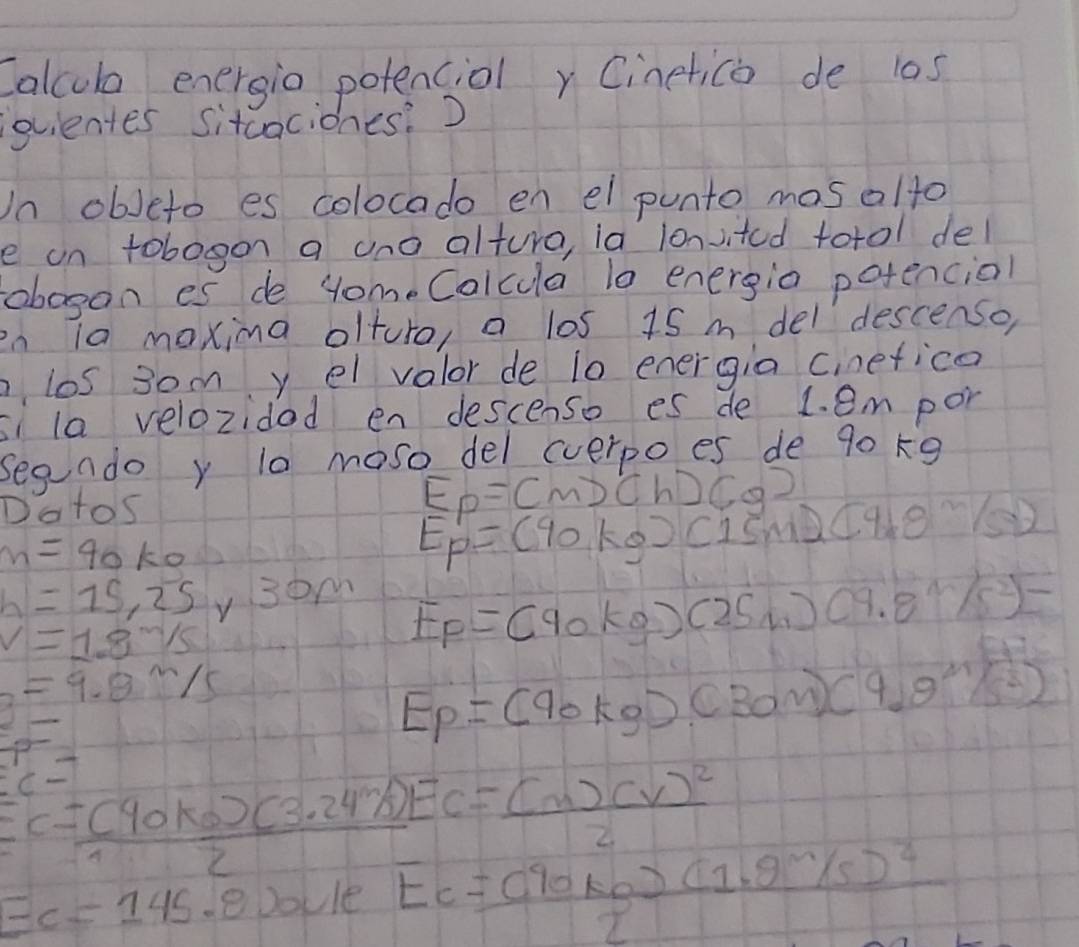 Calcula energia potencial y Cinetica de las
iguientes situaciones:)
Un objeto es colocado en el punto mas alto
e un tobogan a una altura, la lonjitud total del
tobogan es de 40m. Calcula la energia potencial
en la maxima altura, a los 15 m del descenso,
a los 30m y el valor de la energia cinetica
si la velozidad en descenso es de 1.8m por
segundo y la masa del cuerpo es de 90 kg
Datos
Ep=(m)(h)(g)
m=90kg
Ep=(90kg)(15m)(9.8m/s2)
h=15,25 y 30m
v=1.8m/s
Ep=(90kg)(25m)(9.8m/s2)=
=9.8m/s
Ep=(90kg)(30m)(9.8m/s2)
Ep=
Ec=
Ec=(90kg)(3.24m/s)/2
Ec=(m)(v)²/2
Ec=145.8 Joule
Ec=(90kg)(1.8m/s)²/2